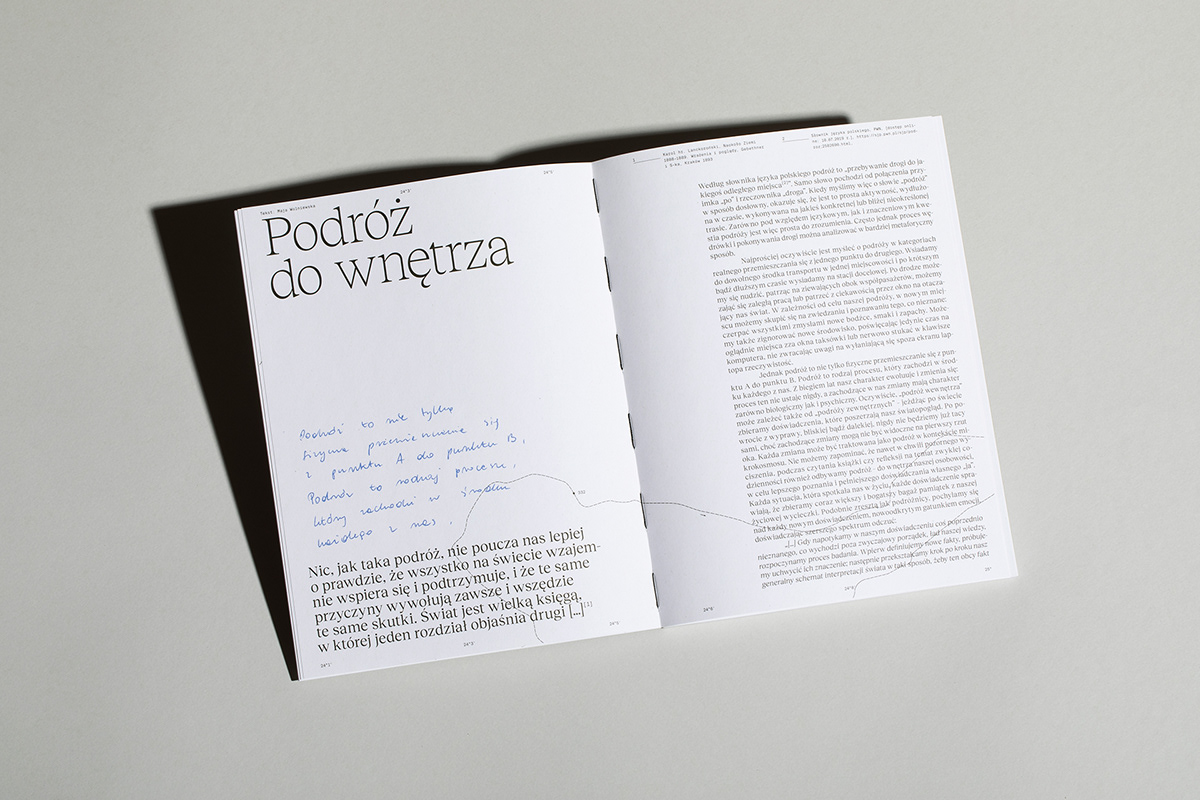 Tekst: Maja Wolniewska
Podróż
do wnętrza
Podróż to nie tylko
fizyczne przemieszczanie się
z punktu A do punktu B.
Podróż to rodzaj procesu,
który zachodzi w środku
każdego z nas.
Nic, jak taka podróż, nie poucza nas lepiej
o prawdzie, że wszystko na świecie wzajem-
nie wspiera się i podtrzymuje, i że te same
przyczyny wywołują zawsze i wszędzie
te same skutki. Świat jest wielką księgą,
w której jeden rozdział objaśnia drugi [...][1]
24°1'
24°5'
1
Karol hr. Lanckoroński, Naokoło Ziemi
1888–1889. Wrażenia i poglądy, Gebethner
i S-ka, Kraków 1893
2
Słownik języka polskiego, PWN, [dostęp onli-
Według słownika języka polskiego podróż to „przebywanie drogi do ja-
kiegoś odległego miejsca[2]”. Samo słowo pochodzi od połączenia przy-
imka „po” i rzeczownika „droga”. Kiedy myślimy więc o słowie „podróż”
w sposób dosłowny, okazuje się, że jest to prosta aktywność, wydłużo-
na w czasie, wykonywana na jakieś konkretnej lub bliżej nieokreślonej
trasie. Zarówno pod względem językowym, jak i znaczeniowym kwe-
stia podróży jest więc prosta do zrozumienia. Często jednak proces wę-
drówki i pokonywania drogi można analizować w bardziej metaforyczny
sposób.
Najprościej oczywiście jest myśleć o podróży w kategoriach
realnego przemieszczania się z jednego punktu do drugiego. Wsiadamy
do dowolnego środka transportu w jednej miejscowości i po krótszym
bądź dłuższym czasie wysiadamy na stacji docelowej. Po drodze może-
my się nudzić, patrząc na ziewających obok współpasażerów, możemy
zająć się zaległą pracą lub patrzeć z ciekawością przez okno na otacza-
jący nas świat. W zależności od celu naszej podróży, w nowym miej-
scu możemy skupić się na zwiedzaniu i poznawaniu tego, co nieznane:
czerpać wszystkimi zmysłami nowe bodźce, smaki i zapachy. Może-
my także zignorować nowe środowisko, poświęcając jedynie czas na
oglądnie miejsca zza okna taksówki lub nerwowo stukać w klawisze
komputera, nie zwracając uwagi na wyłaniającą się spoza ekranu lap-
topa rzeczywistość.
Jednak podróż to nie tylko fizyczne przemieszczanie się z pun-
ktu A do punktu B. Podróż to rodzaj procesu, który zachodzi w środ-
ku każdego z nas. Z biegiem lat nasz charakter ewoluuje i zmienia się:
proces ten nie ustaje nigdy, a zachodzące w nas zmiany mają charakter
zarówno biologiczny jak i psychiczny. Oczywiście, „podróż wewnętrzna”
może zależeć także od „podróży zewnętrznych” – jeżdżąc po świecie
zbieramy doświadczenia, które poszerzają nasz światopogląd. Po po-
wrocie z wyprawy, bliskiej bądź dalekiej, nigdy nie będziemy już tacy
sami, choć zachodzące zmiany mogą nie być widoczne na pierwszy rzut
oka. Każda zmiana może być traktowana jako podróż w kontekście mi-
krokosmosu. Nie możemy zapominać, że nawet w chwili pozornego wy-
ciszenia, podczas czytania książki czy refleksji na temat zwykłej co-
dzienności również odbywamy podróż – do wnętrza naszej osobowości,
w celu lepszego poznania i pełniejszego doświadczania własnego „ja”.
Każda sytuacja, która spotkała nas w życiu, każde doświadczenie spra-
wiają, że zbieramy coraz większy i bogatszy bagaż pamiątek z naszej
życiowej wycieczki. Podobnie zresztą jak podróżnicy, pochylamy się
nad każdy nowym doświadczeniem, nowoodkrytym gatunkiem emocji,
doświadczając szerszego spektrum odczuć:
„[...] Gdy napotykamy w naszym doświadczeniu coś poprzednio
nieznanego, co wychodzi poza zwyczajowy porządek, ład naszej wiedzy,
rozpoczynamy proces badania. Wpierw definiujemy nowe fakty, próbuje-
my uchwycić ich znaczenie: następnie przekształcamy krok po kroku nasz
generalny schemat interpretacji świata w taki sposób, żeby ten obcy fakt